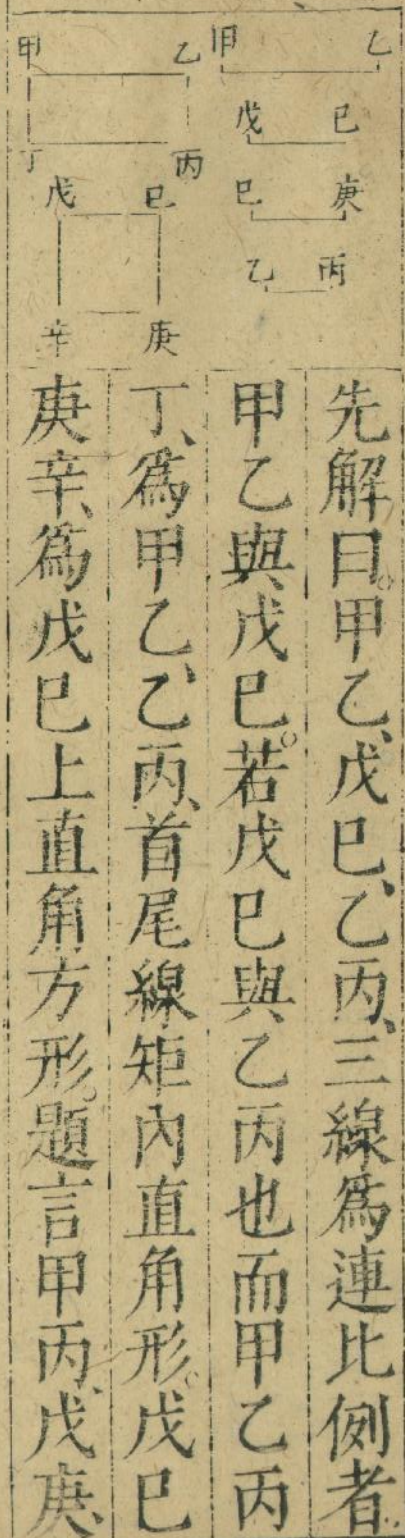 甲 乙
戊 巳
巳 庚
乙 丙
甲 乙
丁 丙
戊 巳
辛 庚
先解曰。甲乙、戊巳、乙丙、三線爲連比例者。
甲乙與戊巳。若戊巳與乙丙也而甲乙丙
丁、爲甲乙、乙丙、首尾線矩內直角形。戊巳
庚辛、爲戊巳上直角方形。題言甲丙、戊庚、